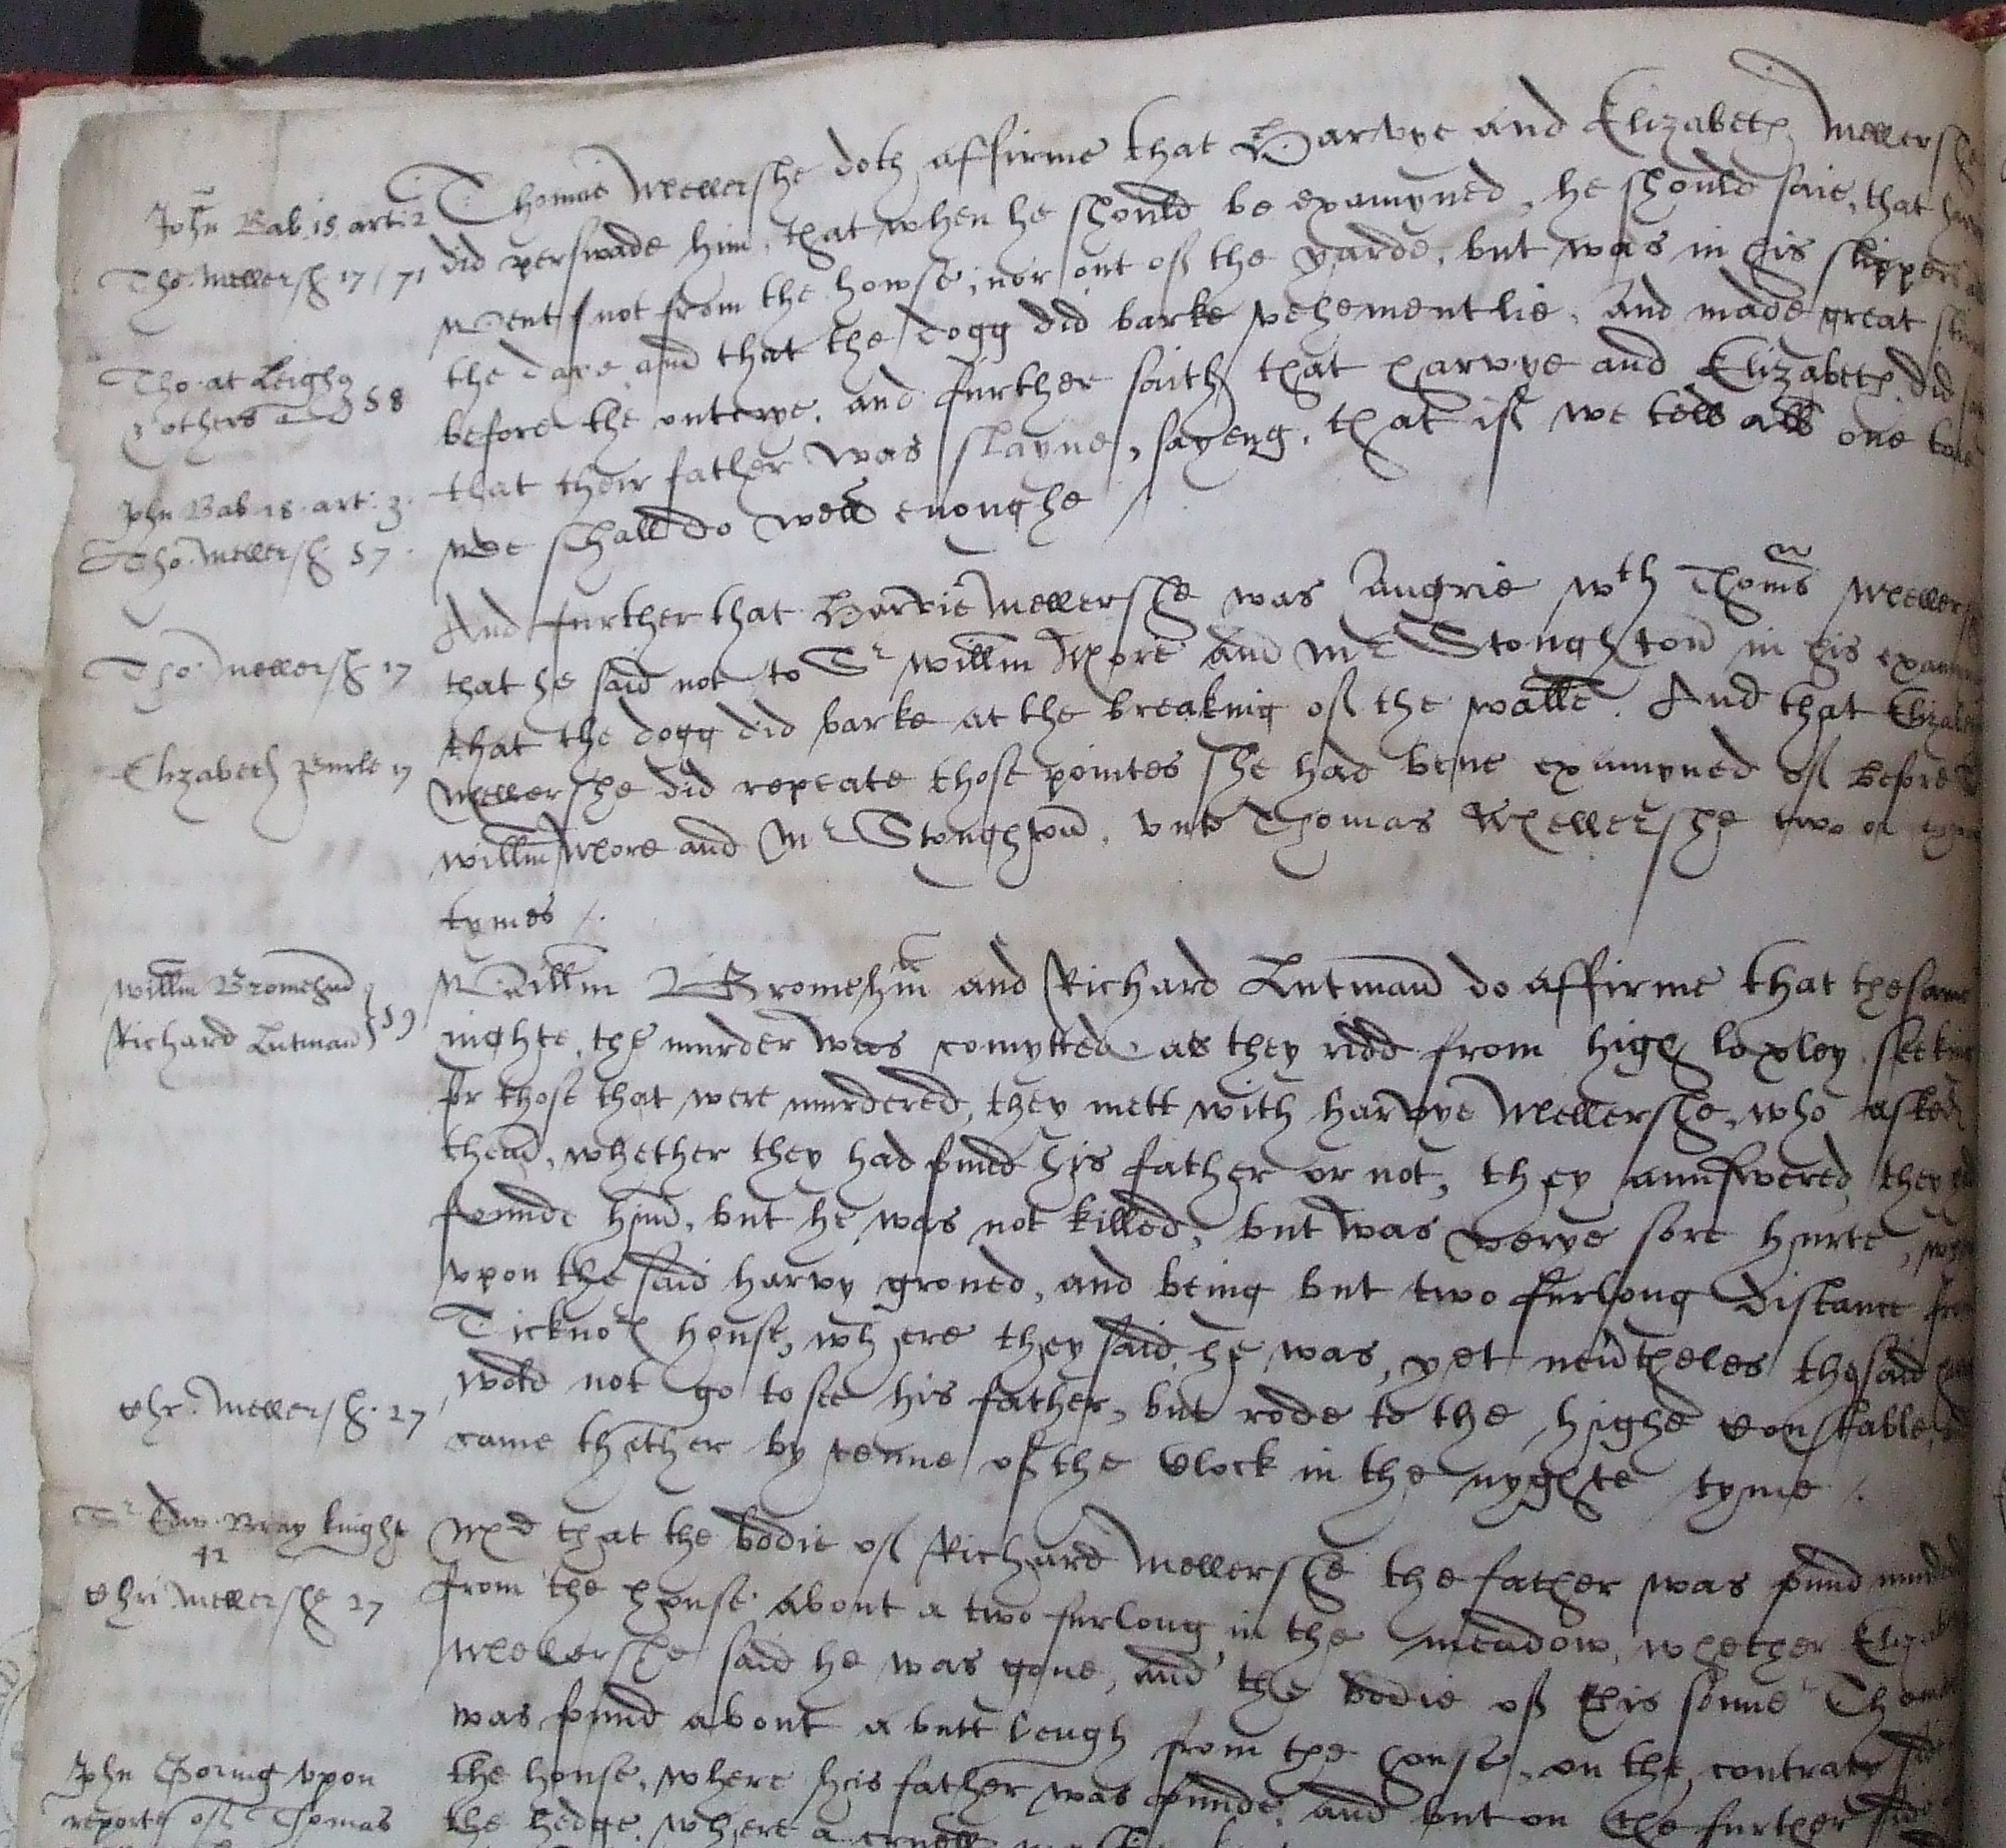 Thomas Mellershe doth affirme that Harvye and Elizabeth Mellershe
John Bab. 15. art: 2
did perswade him, that when he should be examyned, he should saie, that
Tho. Mellersh 17 / 71
went not from the howse, nor out of the yarde, but was in his slippers
the daye, and that the dogg did barke vehementlie, and made great
Tho. at Leigh
& others 58
before the outcrye, and further saith that harvye and Elizabeth did
that their father was slayne, sayeng, that if we tell all one
John Bab. 15. art: 3.
we shall do well enoughe /
Tho. Mellersh 57.
And further that Harvie Mellershe was Angrie wth Thoms
Tho. Mellersh 17
that he said not to Sr willm More and Mr Stoughton in his
that the dogg did barke at the breaking of the walle. And that
Elizabeth 17
Mellershe did repeate those pointes she had bene examyned of before
willm More and Mr Stoughton, unto Thomas Mellershe two or
tymes /.
willm Bromehm
Richard Lutman } 59
Willm Bromehm and Richard Lutman do affirme that the same
nighte, the murder was comytted as they ridd from high loxley
for those that were murdered, they mett with harvye Mellershe, who asked
them, whether they had found his father or not, they aunswered, they
founde him, but he was not killed, but was verye sore hurte,
upon the said harvy groned, and being but two furlong distance
house, where they said he was, yet neutheles the said
wold not go to see his father, but rode to the highe Constable,
Chr. Mellersh. 27
came thether by tenne of the Clock in the nyghte tyme /.
Sr Edw. Bray knight
42
that the bodie of Richard Mellershe the father was found
Chri Mellershe 27
from the house about a two furlong in the meadow, whether
Mellershe said he was gone, and the bodie of his sonne
was found about a butt lengh from the house, on the contrary
John Goring upon
the house, where his father was founde, and but on the further
reporte of Thomas
the hedge, where a